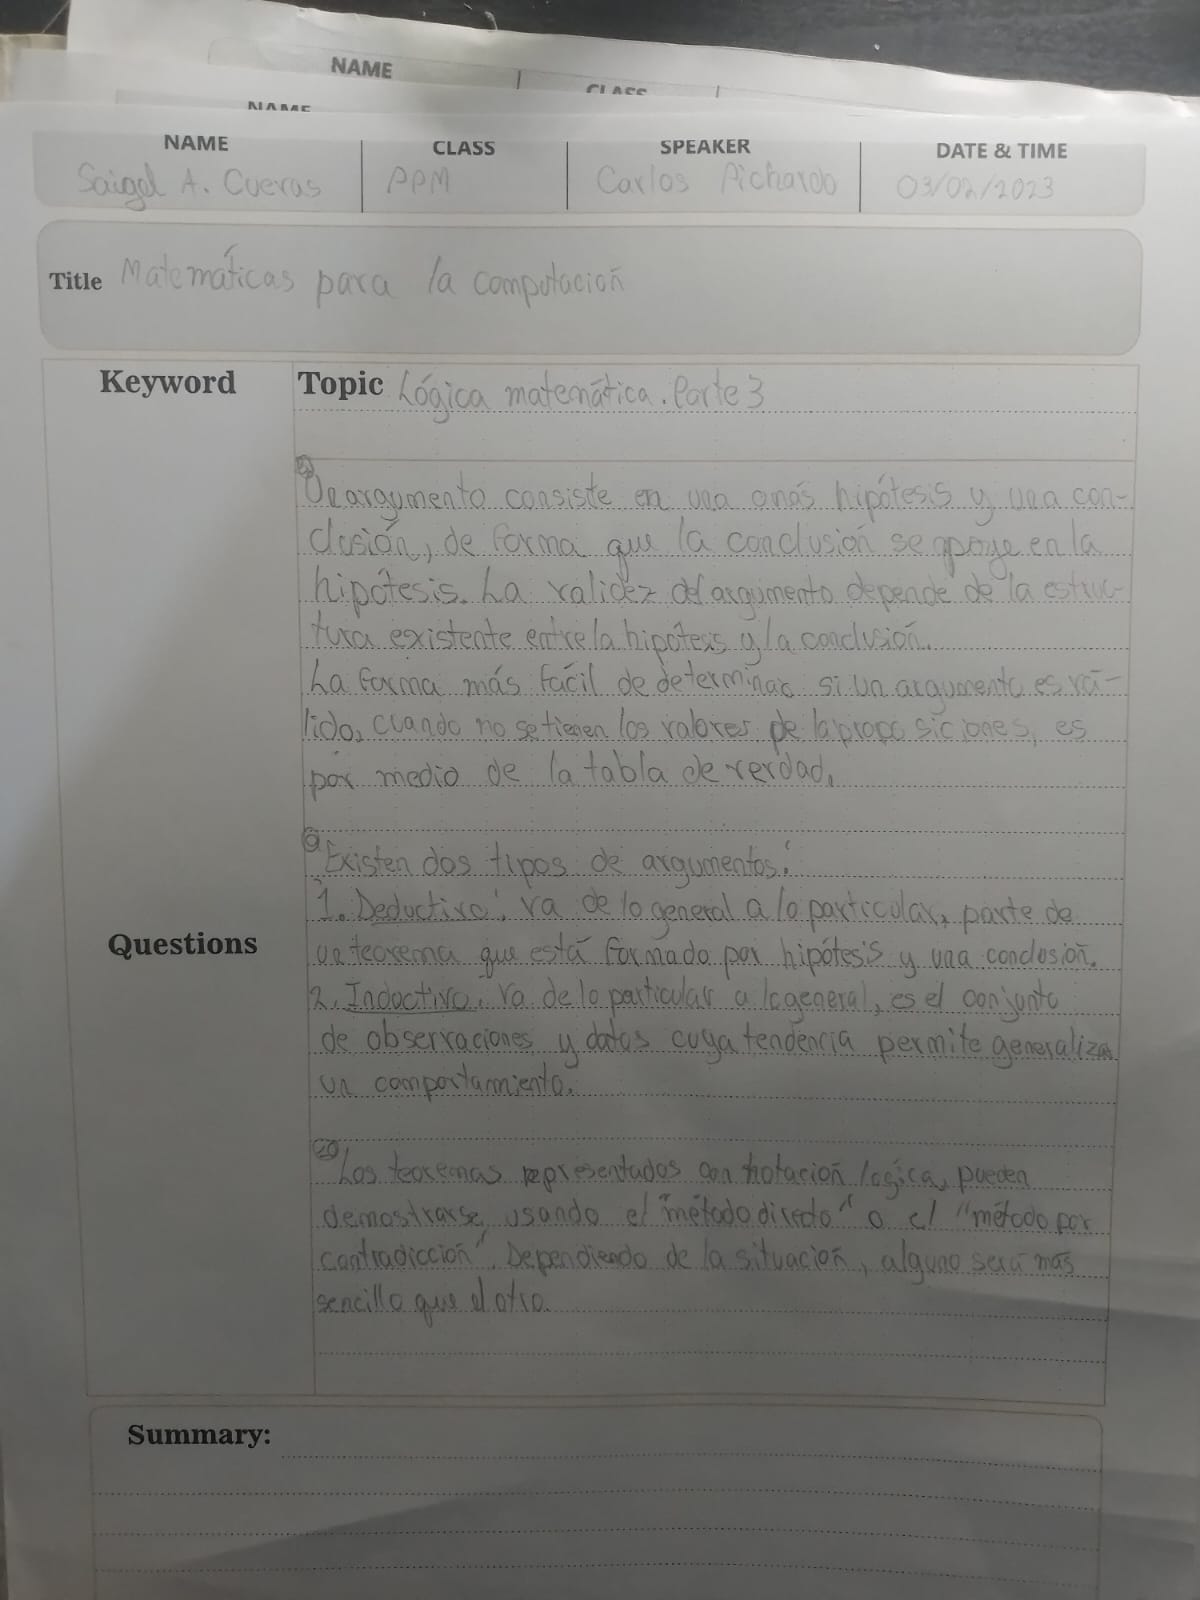 NAME
CLASS
NAME
NAME CLASS SPEAKER DATE & TIME
Saigel A. Cuevas PPM Carlos Pichardo 03/02/2023
Title Matemáticas para la computación
Keyword Topic Lógica matemática. Parte 3
Un argumento consiste en una o más hipótesis y una con-
clusión, de forma que la conclusión se apoye en la
hipótesis. La validez del argumento depende de la estruc-
tura existente entre la hipótesis y la conclusión.
La forma más fácil de determinar si un argumento es vá-
lido, cuando no se tienen los valores de la proposiciones, es
por medio de la tabla de verdad.
Existen dos tipos de argumentos:
1. Deductivo: va de lo general a lo particular, parte de
un teorema que está formado por hipótesis y una conclusión.
Questions
2. Inductivo: va de lo particular a lo general, es el conjunto
de observaciones y datos cuya tendencia permite generalizar
un comportamiento.
20 Los teoremas representados con notación lógica, pueden
demostrarse usando el "método directo" o el "método por
contradicción". Dependiendo de la situación, alguno será más
sencillo que el otro.
Summary: